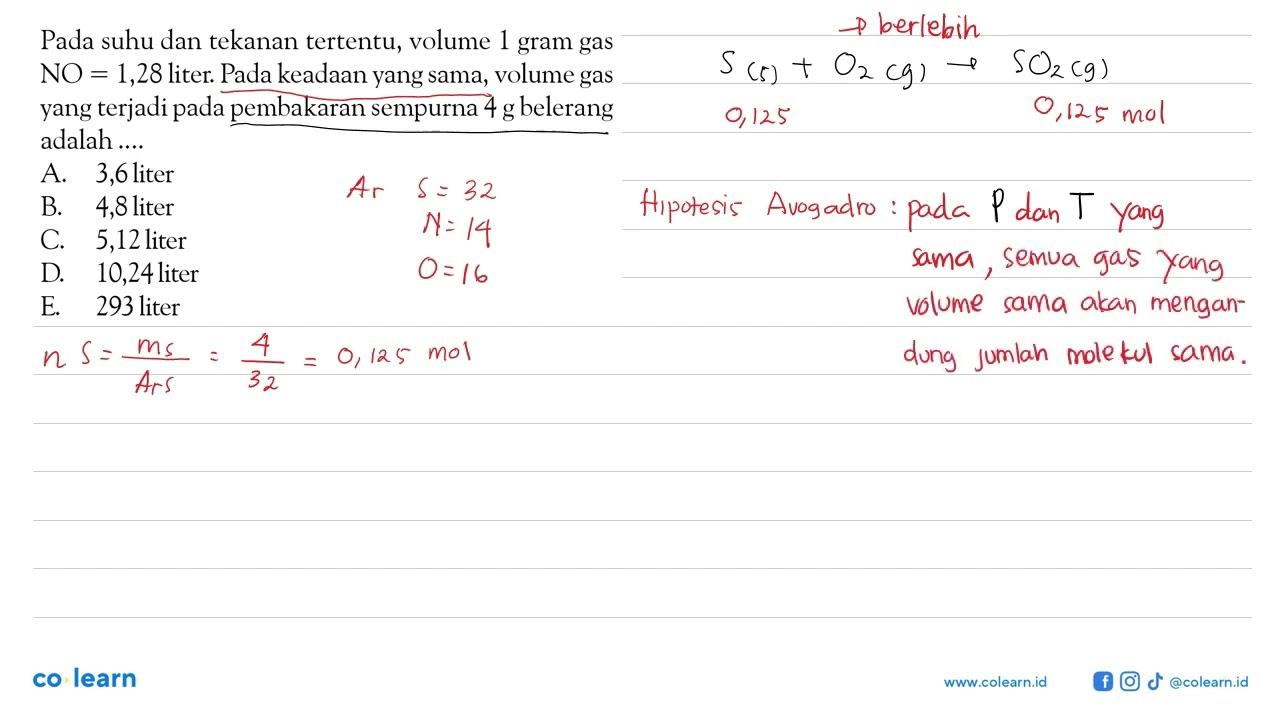 Pada suhu dan tekanan tertentu, volume 1 gram gas
NO = 1,28 liter. Pada keadaan yang sama, volume gas
yang terjadi pada pembakaran sempurna 4 g belerang
adalah ....
A. 3,6 liter
B. 4,8 liter
C. 5,12 liter
D. 10,24 liter
E. 293 liter
Ar S = 32
N = 14
O = 16
n S = ms/Ar S = 4/32 = 0,125 mol
→ berlebih
S(s) + O2(g) → SO2(g)
0,125 0,125 mol
Hipotesis Avogadro : pada P dan T yang
sama, semua gas yang
volume sama akan mengan-
dung jumlah molekul sama.
co learn
www.colearn.id
@colearn.id